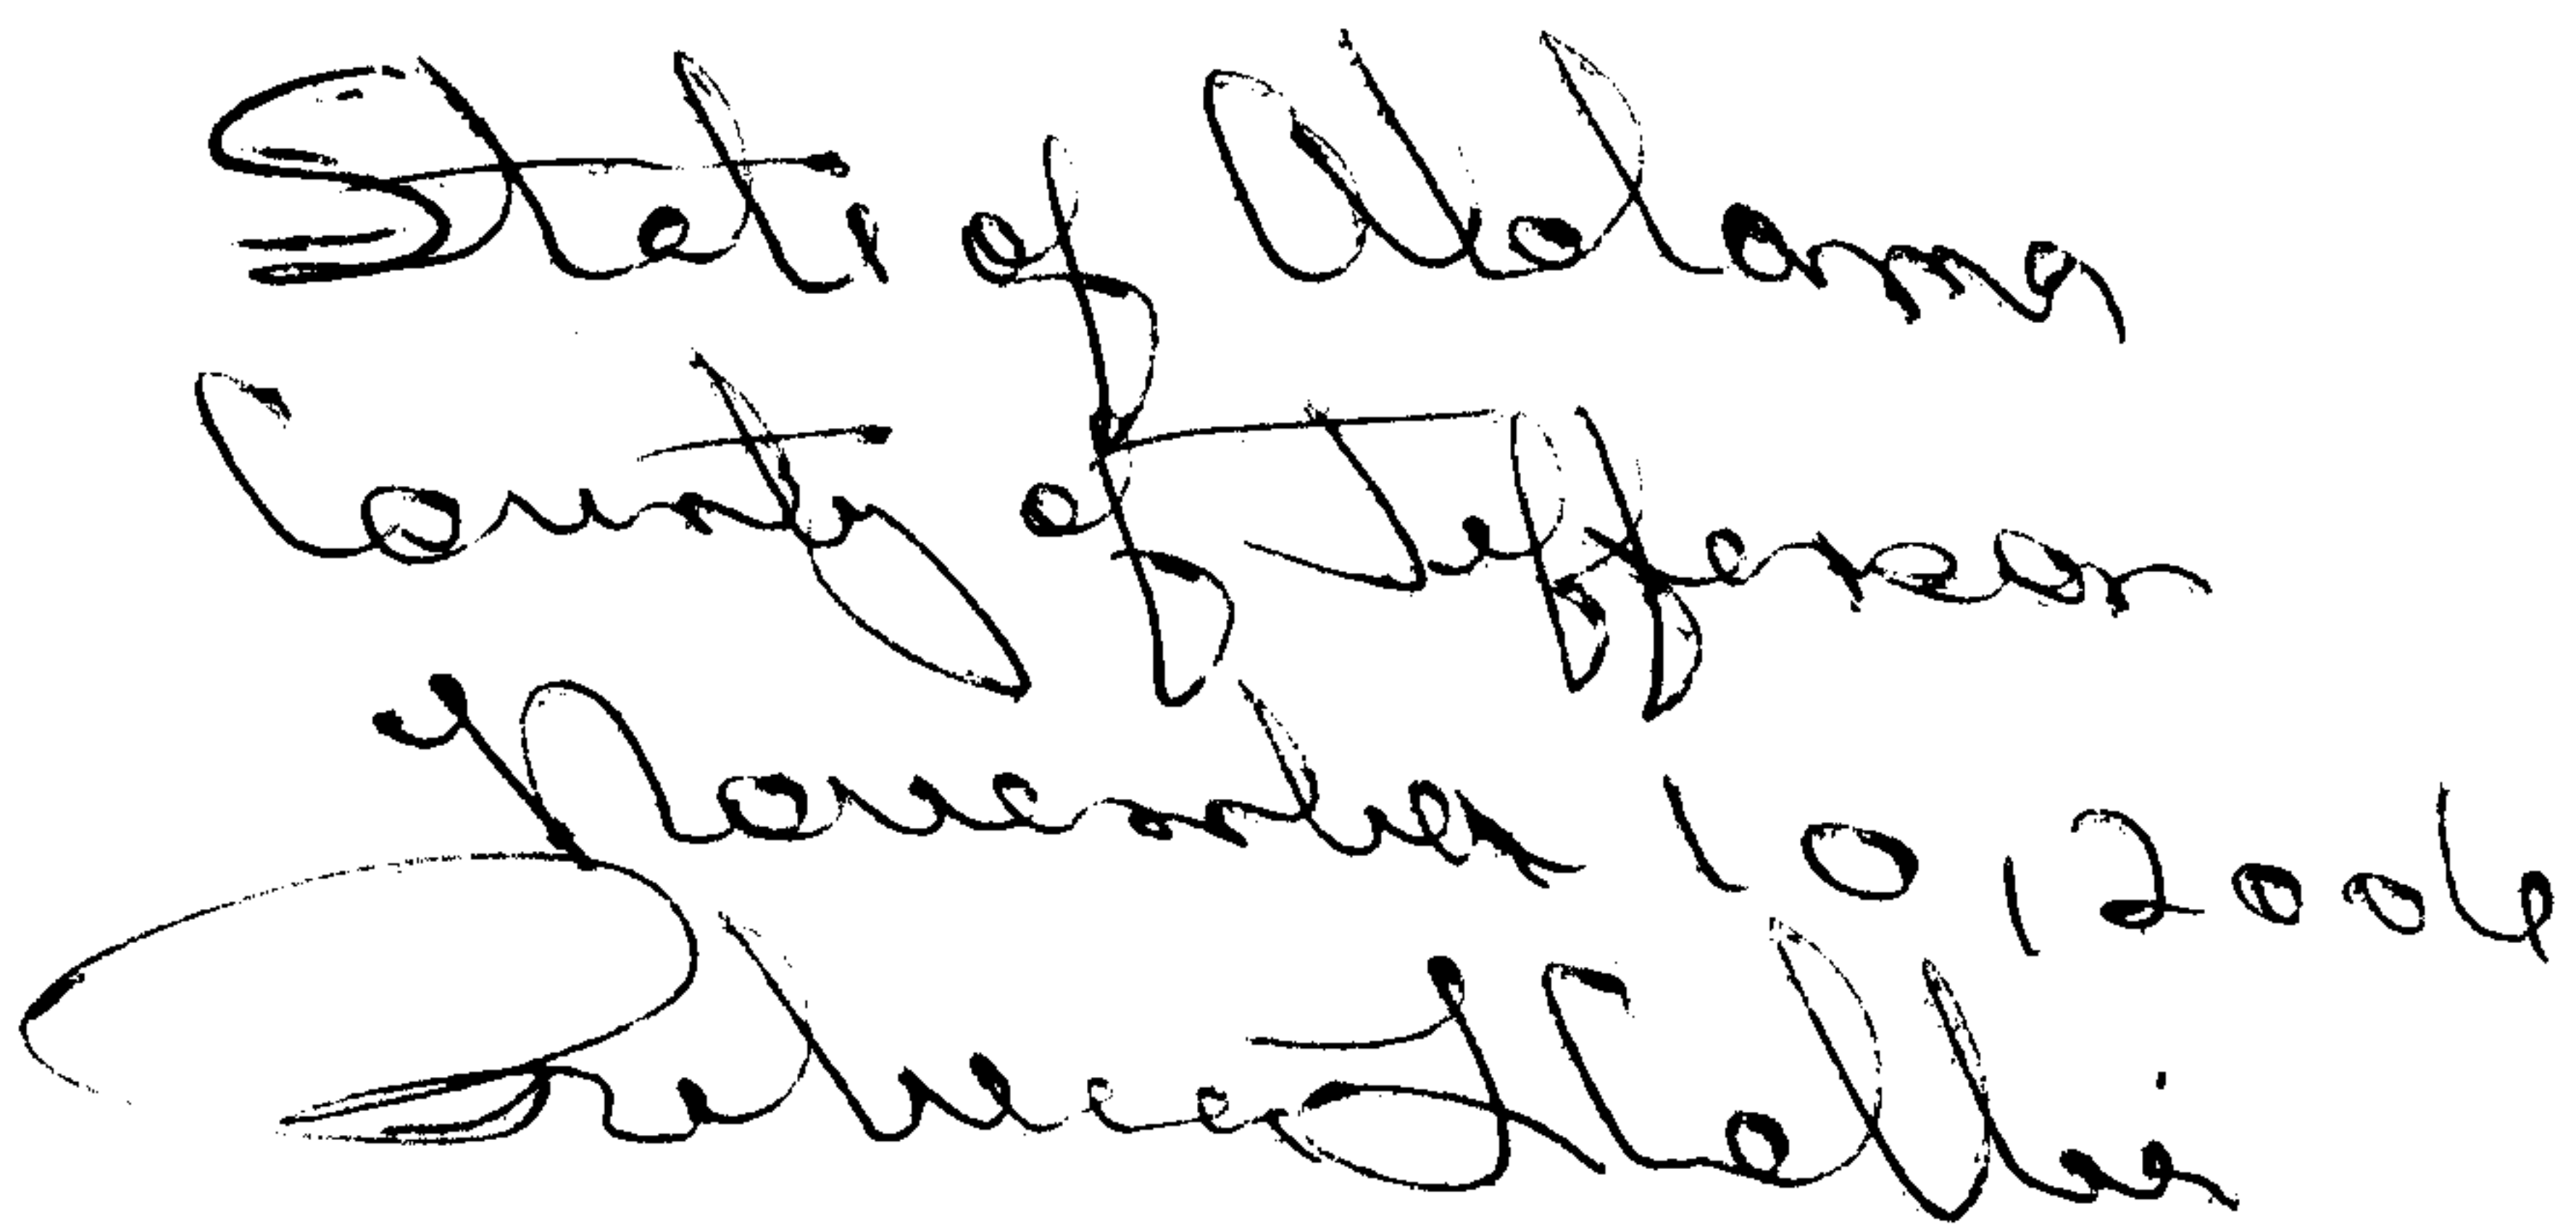 State of Alabama
County of Jefferson
November 10, 2006
Rebecca J Collier